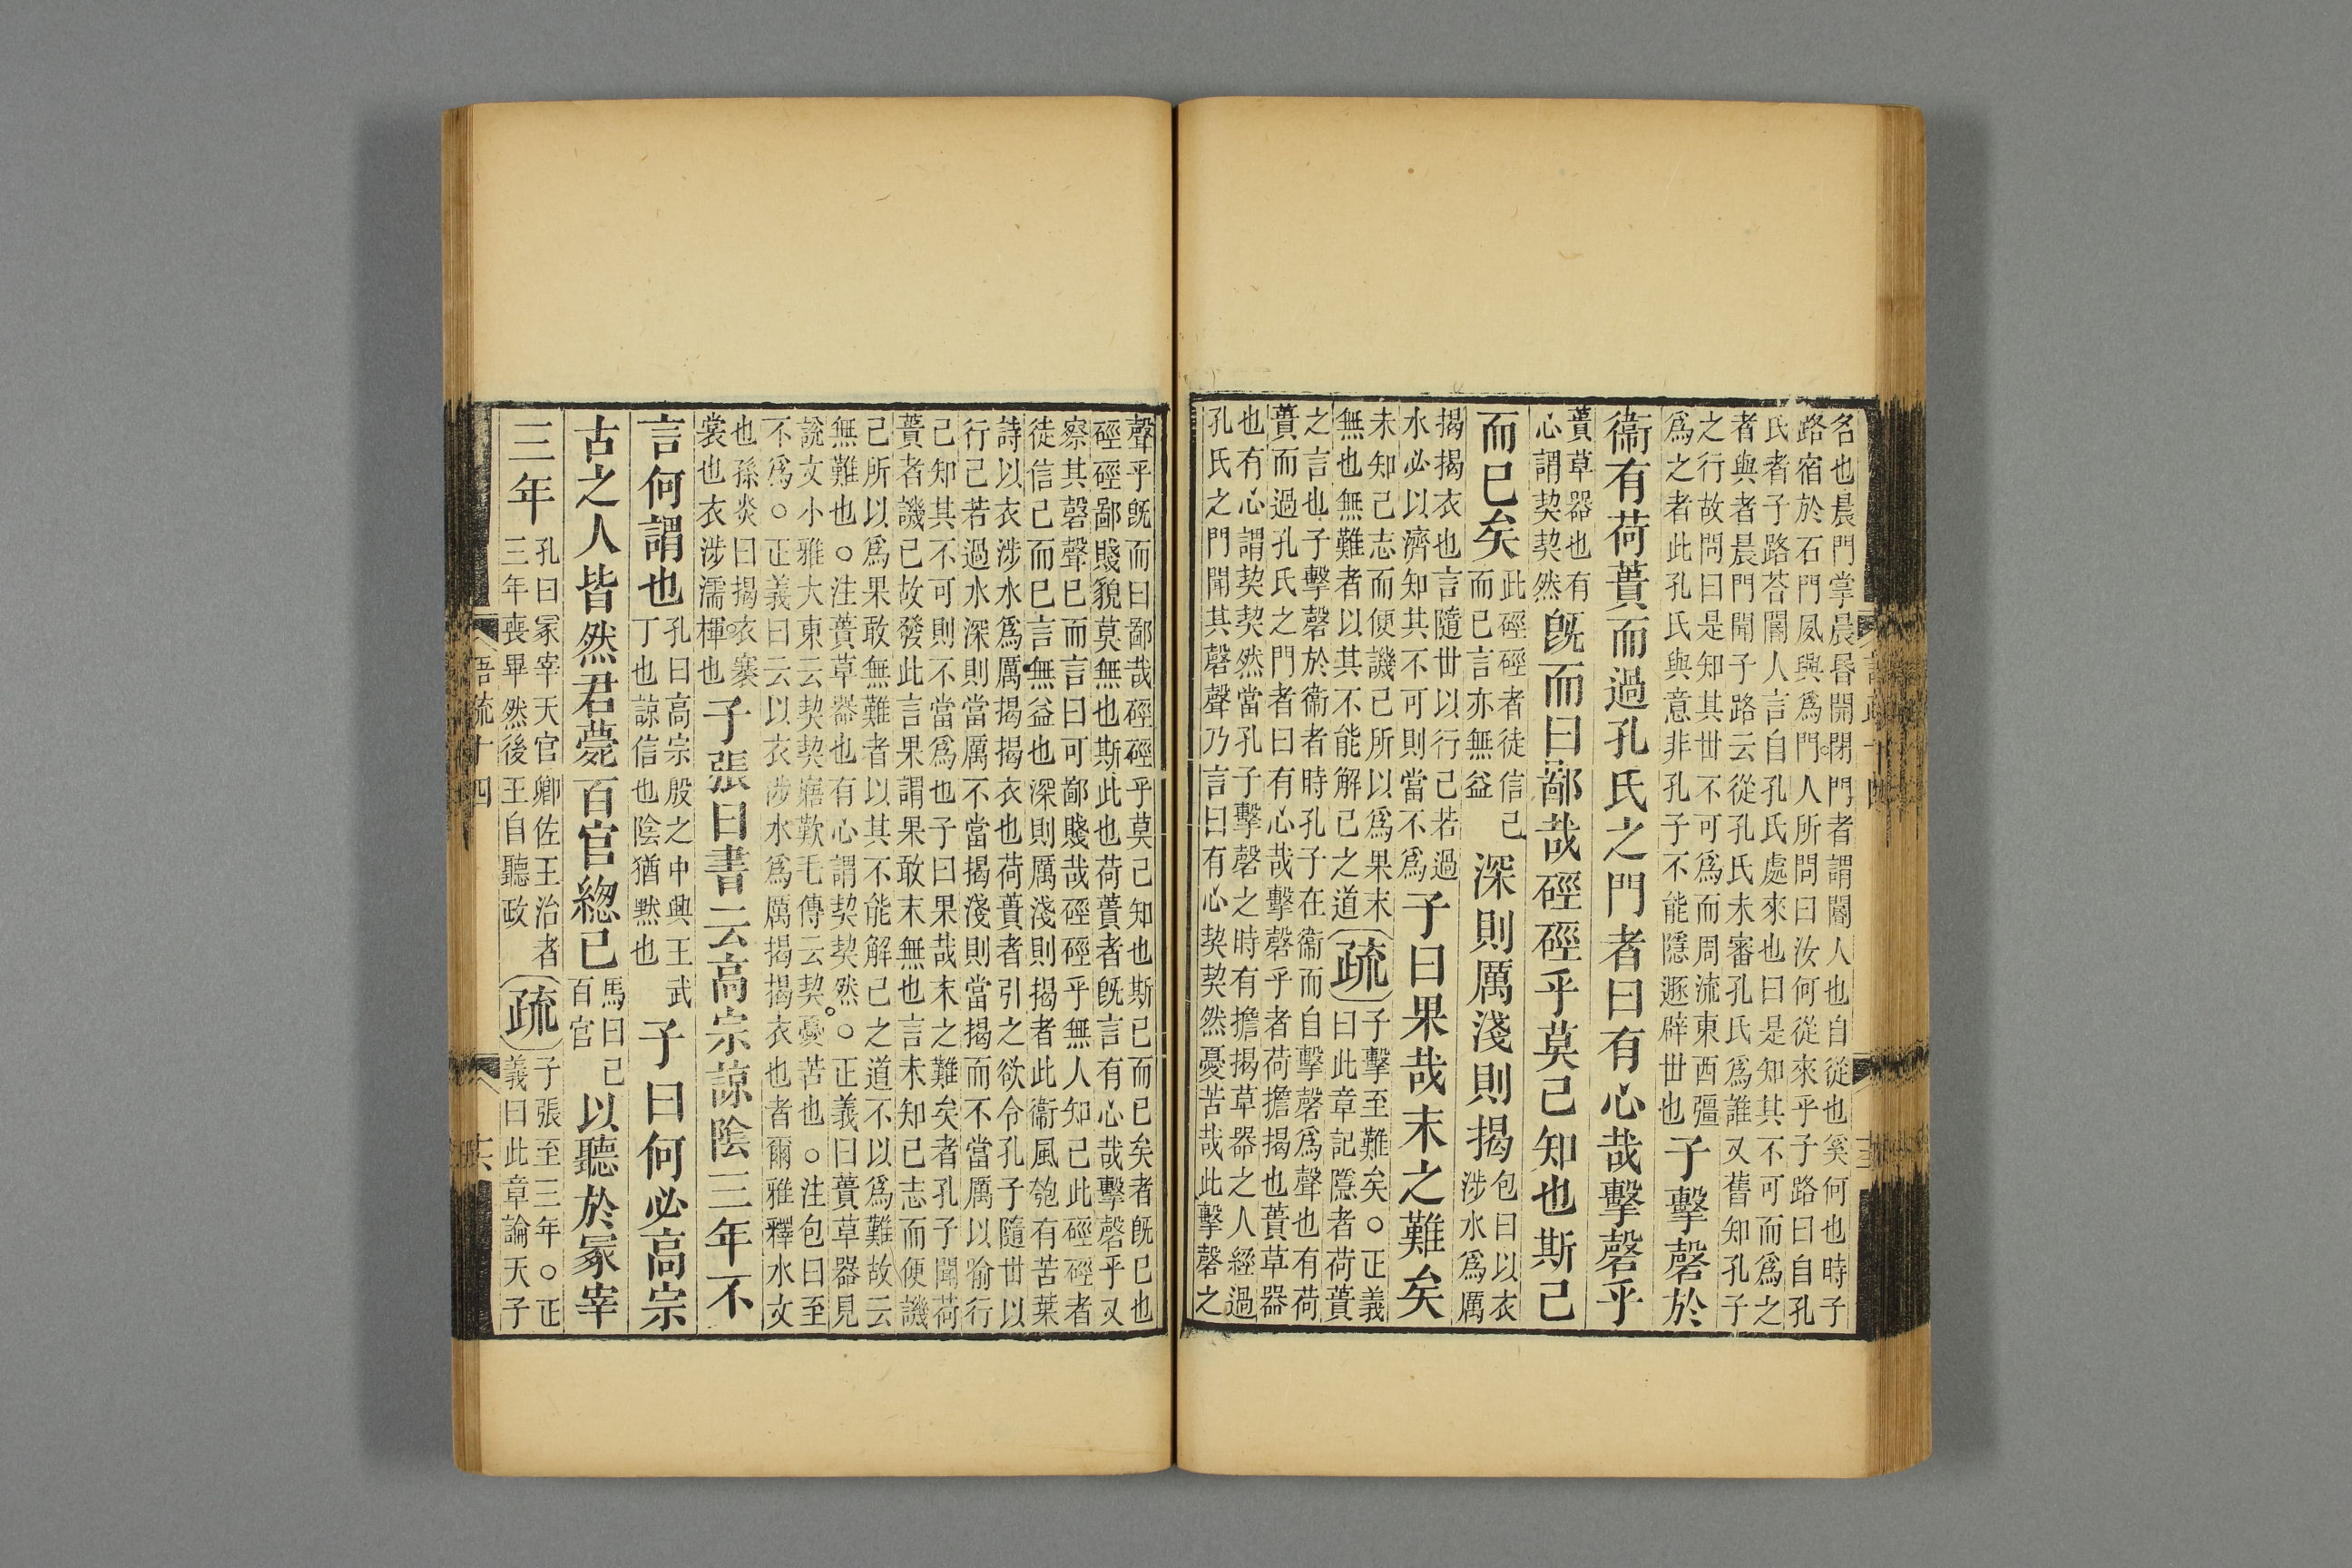 名也晨門掌晨昏開閉門者謂閽人也自從也奚何也時子
路宿於石門夙興爲門人所問曰汝何從來乎子路曰自孔
氏者子路荅閽人言自孔氏處來也曰是知其不可而爲之
者與者晨門聞子路云從孔氏未審孔氏爲誰又舊知孔子
之行故問曰是知其世不可爲而周流東西彊
爲之者此孔氏與意非孔子不能隱遯辟世也
子擊磬於
衞有荷蕢而過孔氏之門者曰有心哉擊磬乎
蕢草器也有
心謂契契然
旣而曰鄙哉硜硜乎莫己知也斯己
而已矣
此硜硜者徒信己
而已言亦無益
深則厲淺則揭
包曰以衣
涉水爲厲
揭揭衣也言隨世以行己若過
水必以濟知其不可則當不爲
子曰果哉末之難矣
未知己志而便譏己所以爲果末
無也無難者以其不能解已之道
疏
子擊至難矣○正義
曰此章記隱者荷蕢
之言也子擊磬於衞者時孔子在衞而自擊磬爲聲也有荷
蕢而過孔氏之門者曰有心哉擊磬乎者荷擔揭也蕢草器
也有心謂契契然當孔子擊磬之時有擔揭草器之人經過
孔氏之門聞其磬聲乃言曰有心契契然憂苦哉此擊磬之
聲乎旣而曰鄙哉硜硜乎莫己知也斯已而已矣者旣已也
硜硜鄙賤貌莫無也斯此也荷蕢者旣言有心哉擊磬乎又
察其磬聲已而言曰可鄙賤哉硜硜乎無人知己此硜硜者
徒信己而已言無益也深則厲淺則揭者此衞風匏有苦葉
詩以衣涉水爲厲揭揭衣也荷蕢者引之欲令孔子隨世以
行己若過水深則當厲不當揭淺則當揭而不當厲以喻行
己知其不可則不當爲也子曰果哉末之難矣者孔子聞荷
蕢者譏己故發此言果謂果敢末無也言未知已志而便譏
己所以爲果敢無難者以其不能解己之道不以爲難故云
無難也○注蕢草器也有心謂契契然○正義曰蕢草器見
說文小雅大東云契契寤歎毛傳云契憂苦也○注包曰至
不爲○正義曰云以衣涉水爲厲揭揭衣也者爾雅釋水文
也孫炎曰揭衣褰
裳也衣涉濡褌也
子張曰書云高宗諒陰三年不
言何謂也
孔曰高宗殷之中興王武
丁也諒信也陰猶黙也
子曰何必高宗
古之人皆然君薨百官緫已
馬曰己
百官
以聽於冢宰
三年
孔曰冢宰天官卿佐王治者
三年喪畢然後王自聽政
疏
子張至三年○正
義曰此章論天子